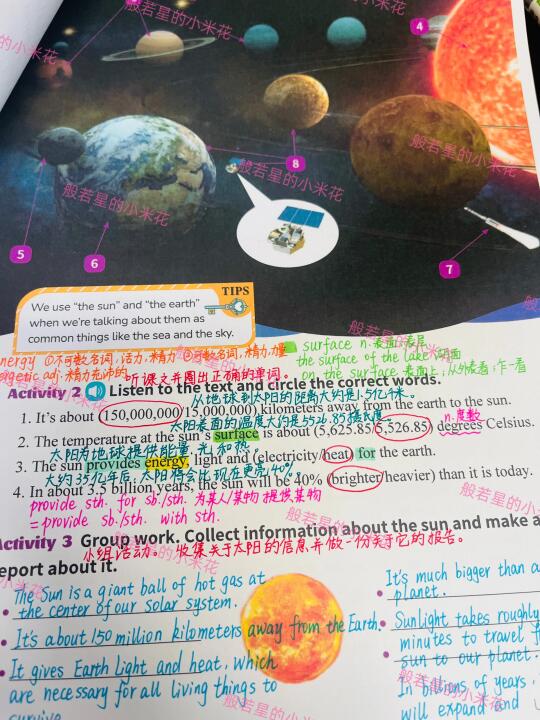 般若星的小米花
4
般若星的小米花
般若星的小米花
般若星的小米花
般若星的小米花
8
5
6
7
TIPS
We use "the sun" and "the earth"
when we're talking about them as
common things like the sea and the sky.
①不可数名词,活力,精力 ②可数名词,精力,力量
adj.精力充沛的
surface n.表面,表层
the surface of the lake 湖面
on the surface 表面上,从外表看,乍一看
听课文并圈出正确的单词。
Activity 2 Listen to the text and circle the correct words.
从地球到太阳的距离大约是1.5亿千米。
1. It's about (150,000,000/15,000,000) kilometers away from the earth to the sun.
太阳表面的温度大约是5526.85摄氏度。
n.度数
2. The temperature at the sun's surface is about (5,625.85/5,526.85) degrees Celsius.
太阳为地球提供能量,光和热。
3. The sun provides energy, light and (electricity/heat) for the earth.
大约35亿年后,太阳将会比现在更亮40%。
4. In about 3.5 billion years, the sun will be 40% (brighter/heavier) than it is today.
provide sth. for sb./sth. 为某人/某物提供某物
= provide sb./sth. with sth.
般若星的小米花
Activity 3 Group work. Collect information about the sun and make a
小组活动。 收集关于太阳的信息并做一份关于它的报告。
report about it.
The Sun is a giant ball of hot gas at
the center of our solar system.
It's about 150 million kilometers away from the Earth.
It gives Earth light and heat, which
are necessary for all living things to
It's much bigger than a
planet.
Sunlight takes roughly
minutes to travel
sun to our planet.
In billions of years,
will expand and
般若星的小米花